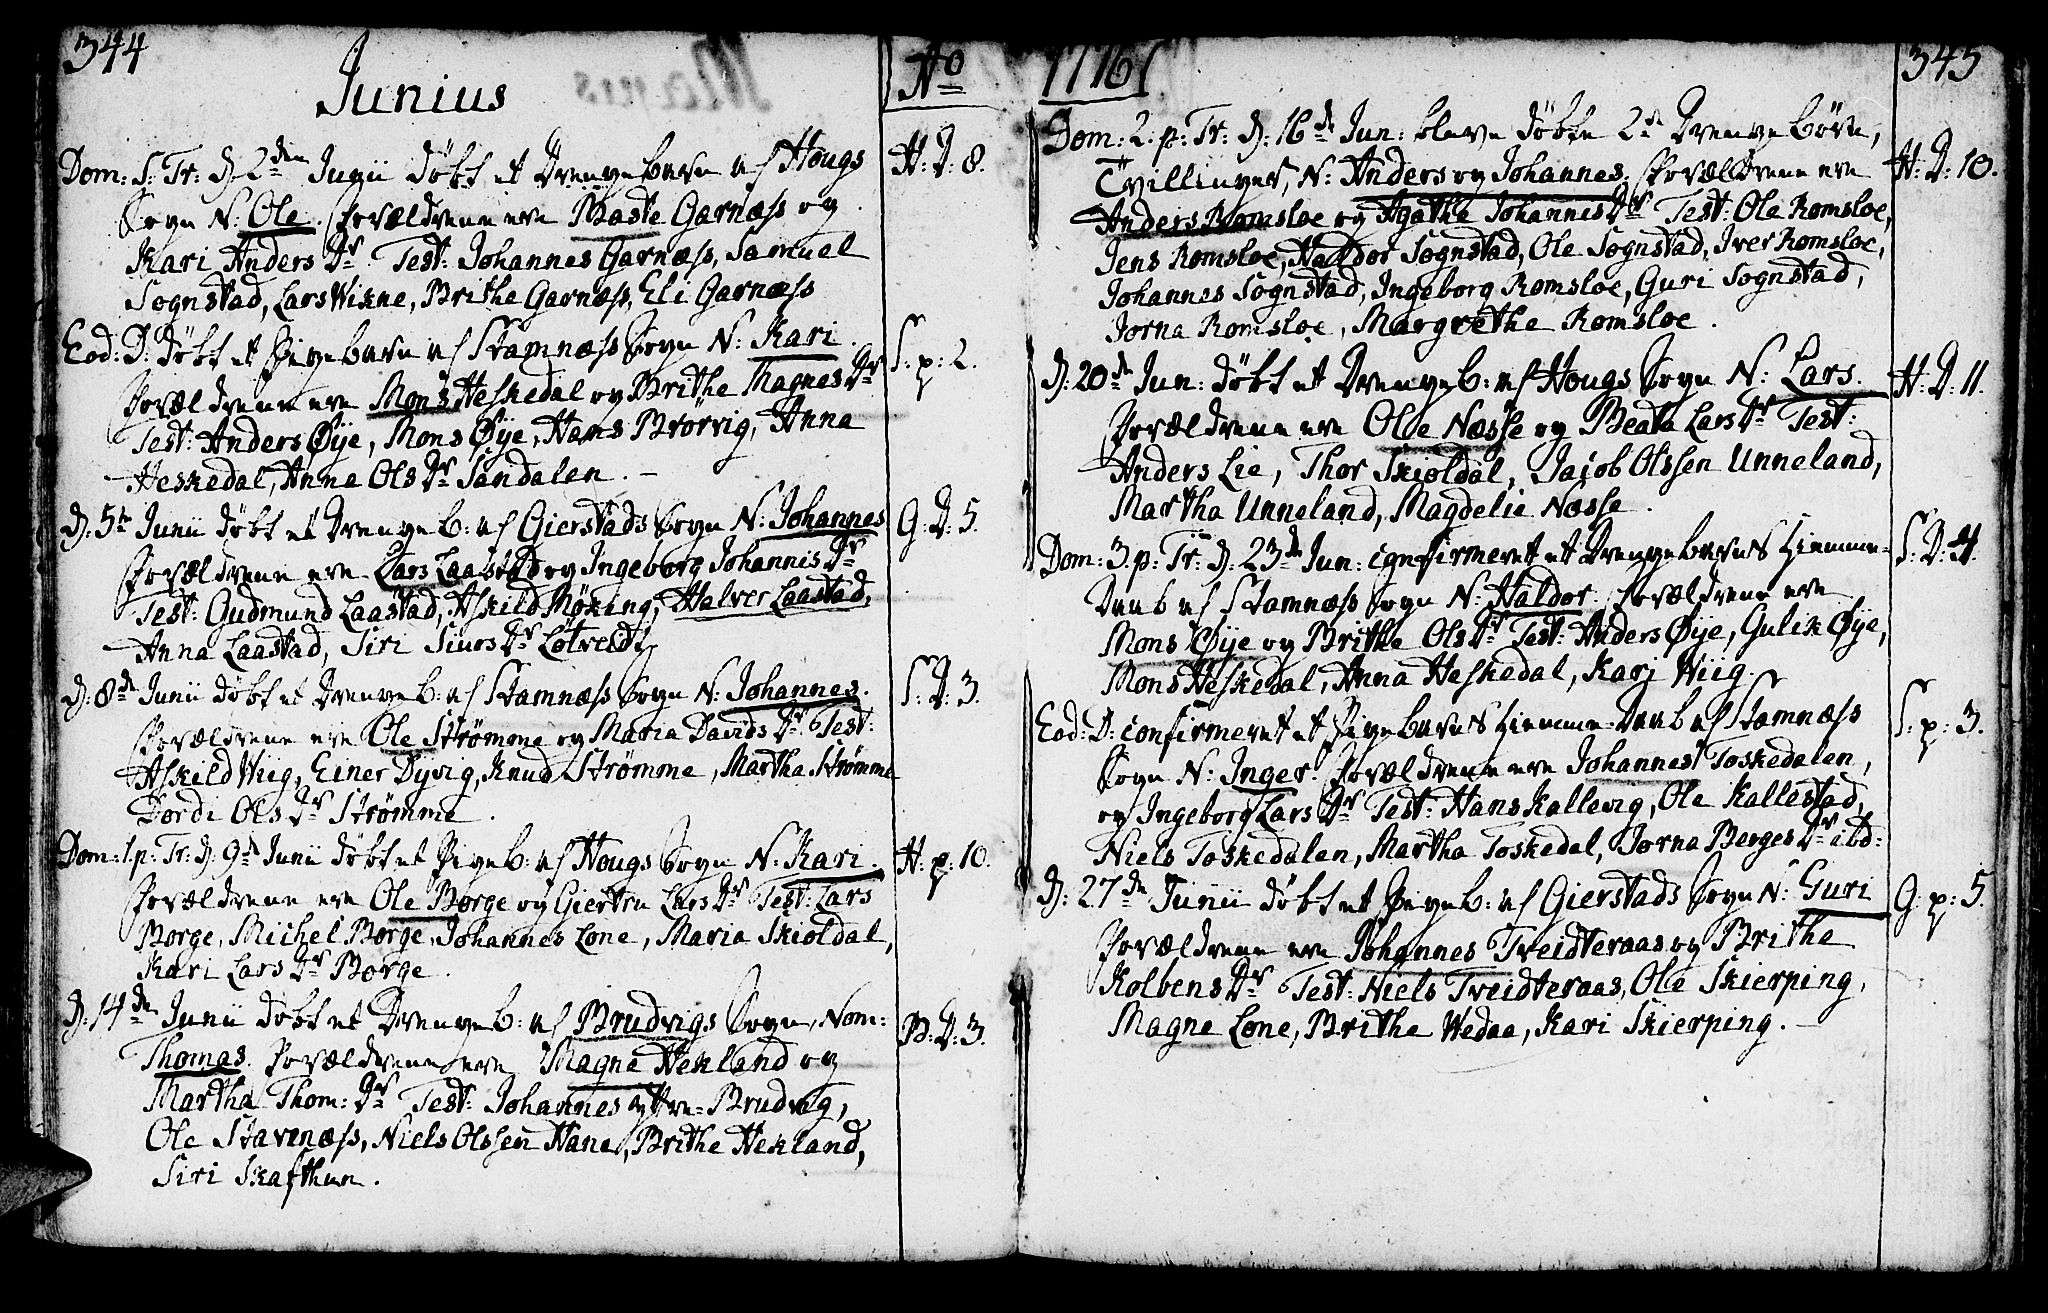 344
Junius
No
Dom: S: Tr: d. 2den Junii døbt et Drengebarn af Hougs
Sogn N: Ole. Forældrene ere Baste Garnæss og
Kari Anders Dr. Test: Johannes Garnæss, Samuel
Sognstad, Lars Wikne, Brithe Garnæss, Eli Garnæss
H: D: 8.
Eod: D: døbt et Pigebarn af Stamnæss Sogn N: Kari.
Forældrene ere Mons Heskedal og Brithe Magnes Dr
Test: Anders Øye, Mons Øye, Hans Brørvig, Anna
Heskedal, Anna Ols Dr Sandalen.
S: p: 2.
d: 5te Junii døbt et Drengeb: af Gierstads Sogn N: Johannes
Forældrene ere Lars Laastad og Ingeborg Johannis Dr
Test: Gudmund Laastad, Askild Møking, Halver Laastad,
Anna Laastad, Siri Siurs Dr Løtveidt
G: D: 5.
d: 8de Junii døbt et Drengeb: af Stamnæss Sogn N: Johannes.
Forældrene ere Ole Strømme og Maria Davids Dr. Test:
Askild Wiig, Einer Dyvig, Knud Strømme, Martha Strømme
Dordi Ols Dr Strømme.
S: D: 3.
Dom: 1 p: Tr: d. 9de Junii døbt et Pigeb: af Hougs Sogn N: Kari.
Forældrene ere Ole Borge og Giertru Lars Dr Test: Lars
Borge, Michel Borge, Johannes Lone, Maria Skioldal,
Kari Lars Dr Borge.
H: p: 10.
d: 14de Junii døbt et Drengeb: af Brudvigs Sogn, Nom:
Thomas. Forældrene ere Magne Hekland og
Martha Thom: Dr Test: Johannes yttre-Brudvig,
Ole Stavenæss, Niels Olssen Hane, Brithe Hekland,
Siri Skafthun.
B: D: 3.
1776
345
Dom: 2. p: Tr: d: 16de Jun: bleve døbte 2de Drengebørn,
Tvillinger, N: Anders og Johannes. Forældrene ere
Anders Romsloe og Agathe Johannis Dr Test: Ole Romsloe,
Jens Romsloe, Haldor Sognstad, Ole Sognstad, Iver Romsloe,
Johannes Sognstad, Ingeborg Romsloe, Guri Sognstad,
Jorna Romsloe, Margrethe Romsloe.
H: D: 10.
d: 20de Jun: døbt et Drengeb: af Hougs Sogn N: Lars.
Forældrene ere Ole Næsse og Beata Lars Dr Test:
Anders Lie, Thor Skioldal, Jacob Olssen Unneland,
Martha Unneland, Magdelie Næsse.
H: D: 11.
Dom: 3. p: Tr: d: 23de Jun: confirmeret et Drengebarns Hiemme-
Daab af Stamnæss Sogn N: Haldor. Forældrene ere
Mons Øye og Brithe Ols Dr Test: Anders Øye, Gulik Øye,
Mons Heskedal, Anna Heskedal, Kari Wiig.
S: D: 4.
Eod: D: confirmeret et Pigebarns Hiemme-Daab af Stamnæss
Sogn N: Inger. Forældrene ere Johannes Toskedalen,
og Ingeborg Lars Dr Test: Hans Kallevig, Ole Kallestad,
Niels Toskedalen, Martha Toskedal, Jorna Berges Dr ibd:
S: p: 3.
d: 27de Junii døbt et Pigeb: af Gierstads Sogn N: Guri
Forældrene ere Johannes Treidteraas og Brithe
Kolbens Dr Test: Niels Treidteraas, Ole Skierping,
Magne Lone, Brithe Wedaa, Kari Skierping.
G: p: 5.